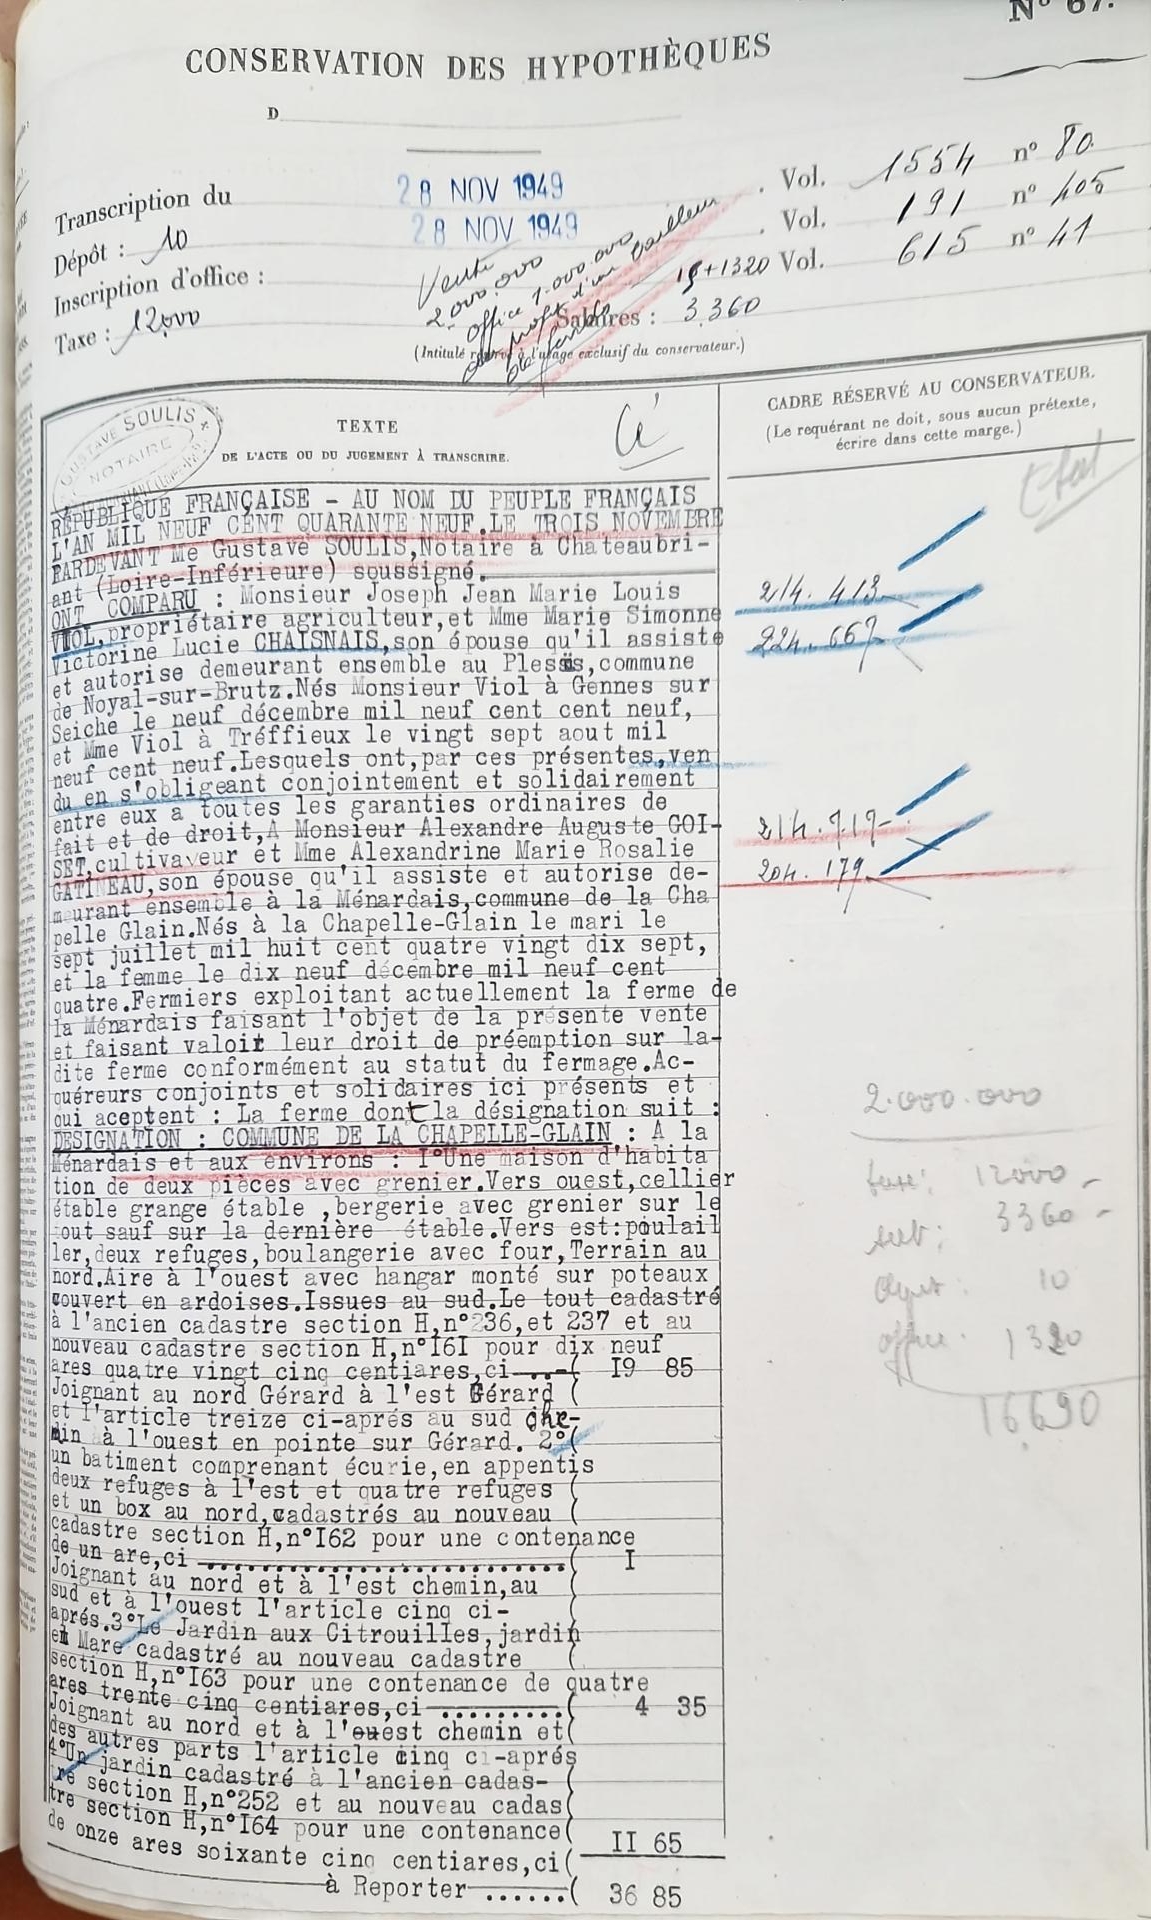 N° 67.
CONSERVATION DES HYPOTHÈQUES
D
Transcription du 28 NOV 1949 . Vol. 1554 n° 80
Dépôt : 10 28 NOV 1949 . Vol. 191 n° 405
Inscription d'office : 15+1320 Vol. 615 n° 41
Taxe : 12000 Salaires : 3.360
Vente
2.000.000
office 1.000.000
au profit d'un bailleur
de fonds
(Intitulé réservé à l'usage exclusif du conservateur.)
GUSTAVE SOULIS
NOTAIRE
TEXTE
DE L'ACTE OU DU JUGEMENT À TRANSCRIRE.
CADRE RÉSERVÉ AU CONSERVATEUR.
(Le requérant ne doit, sous aucun prétexte,
écrire dans cette marge.)
Etat
RÉPUBLIQUE FRANÇAISE - AU NOM DU PEUPLE FRANÇAIS
L'AN MIL NEUF CENT QUARANTE NEUF.LE TROIS NOVEMBRE
PARDEVANT Me Gustave SOULIS,Notaire à Chateaubri-
ant (Loire-Inférieure) soussigné.
ONT COMPARU : Monsieur Joseph Jean Marie Louis
VIOL,propriétaire agriculteur,et Mme Marie Simonne
Victorine Lucie CHAISNAIS,son épouse qu'il assiste
et autorise demeurant ensemble au Plessis,commune
de Noyal-sur-Brutz.Nés Monsieur Viol à Gennes sur
Seiche le neuf décembre mil neuf cent cent neuf,
et Mme Viol à Tréffieux le vingt sept aout mil
neuf cent neuf.Lesquels ont,par ces présentes,ven
du en s'obligeant conjointement et solidairement
entre eux a toutes les garanties ordinaires de
fait et de droit,A Monsieur Alexandre Auguste GOI-
SET,cultivaveur et Mme Alexandrine Marie Rosalie
GATINEAU,son épouse qu'il assiste et autorise de-
meurant ensemble à la Ménardais,commune de la Cha
pelle Glain.Nés à la Chapelle-Glain le mari le
sept juillet mil huit cent quatre vingt dix sept,
et la femme le dix neuf décembre mil neuf cent
quatre.Fermiers exploitant actuellement la ferme de
la Ménardais faisant l'objet de la présente vente
et faisant valoir leur droit de préemption sur la-
dite ferme conformément au statut du fermage.Ac-
quéreurs conjoints et solidaires ici présents et
qui aceptent : La ferme dont la désignation suit :
DESIGNATION : COMMUNE DE LA CHAPELLE-GLAIN : A la
Ménardais et aux environs : I°Une maison d'habita
tion de deux pièces avec grenier.Vers ouest,cellier
étable grange étable ,bergerie avec grenier sur le
tout sauf sur la dernière étable.Vers est:poulail
ler,deux refuges,boulangerie avec four,Terrain au
nord.Aire à l'ouest avec hangar monté sur poteaux
couvert en ardoises.Issues au sud.Le tout cadastré
à l'ancien cadastre section H,n°236,et 237 et au
nouveau cadastre section H,n°I6I pour dix neuf
ares quatre vingt cinq centiares,ci-..-( I9 85
Joignant au nord Gérard à l'est Gérard (
et l'article treize ci-aprés au sud che-
min à l'ouest en pointe sur Gérard. 2°(
un batiment comprenant écurie,en appentis
deux refuges à l'est et quatre refuges (
et un box au nord,cadastrés au nouveau (
cadastre section H,n°I62 pour une contenance
de un are,ci ..........................( I
Joignant au nord et à l'est chemin,au (
sud et à l'ouest l'article cinq ci- (
aprés.3°Le Jardin aux Citrouilles,jardin
et Mare cadastré au nouveau cadastre (
section H,n°I63 pour une contenance de quatre
ares trente cinq centiares,ci-.........( 4 35
Joignant au nord et à l'ouest chemin et(
des autres parts l'article cinq ci-aprés
4°Un jardin cadastré à l'ancien cadas- (
tre section H,n°252 et au nouveau cadas(
tre section H,n°I64 pour une contenance(
de onze ares soixante cinq centiares,ci( II 65
à Reporter ......( 36 85
214.413
224.667
214.717
204.179
2.000.000
taxe : 12000
sal : 3360
dépôt : 10
office : 1320
16690